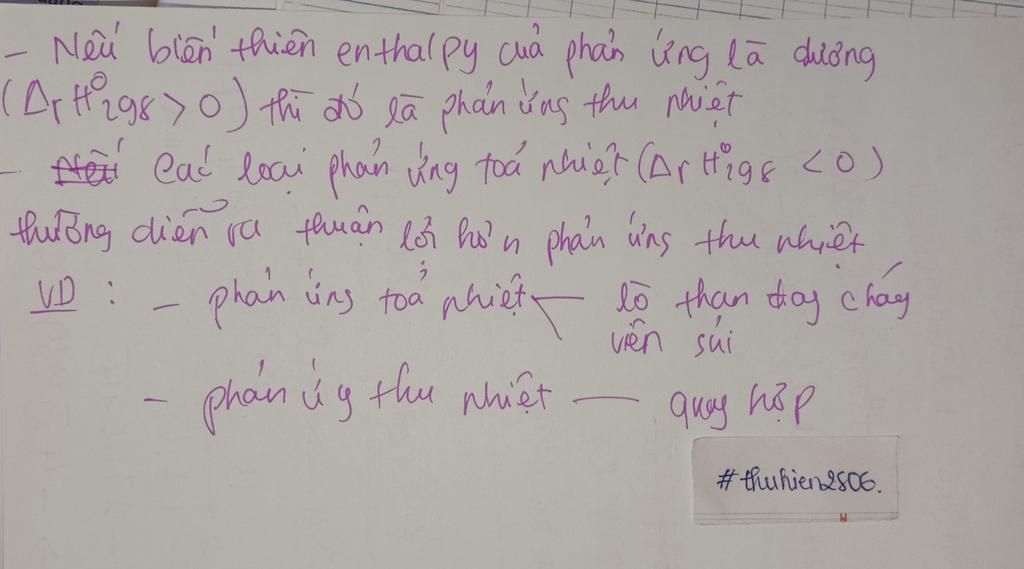 - Nếu biến thiên enthalpy của phản ứng là dương
(ΔrH⁰298 > 0) thì đó là phản ứng thu nhiệt
- Nếu Các loại phản ứng toả nhiệt (ΔrH⁰298 < 0)
thường diễn ra thuận lợi hơn phản ứng thu nhiệt
VD : - phản ứng toả nhiệt lò than đag cháy
viên sủi
- phản ứg thu nhiệt — quag hợp
#thuhien2806.